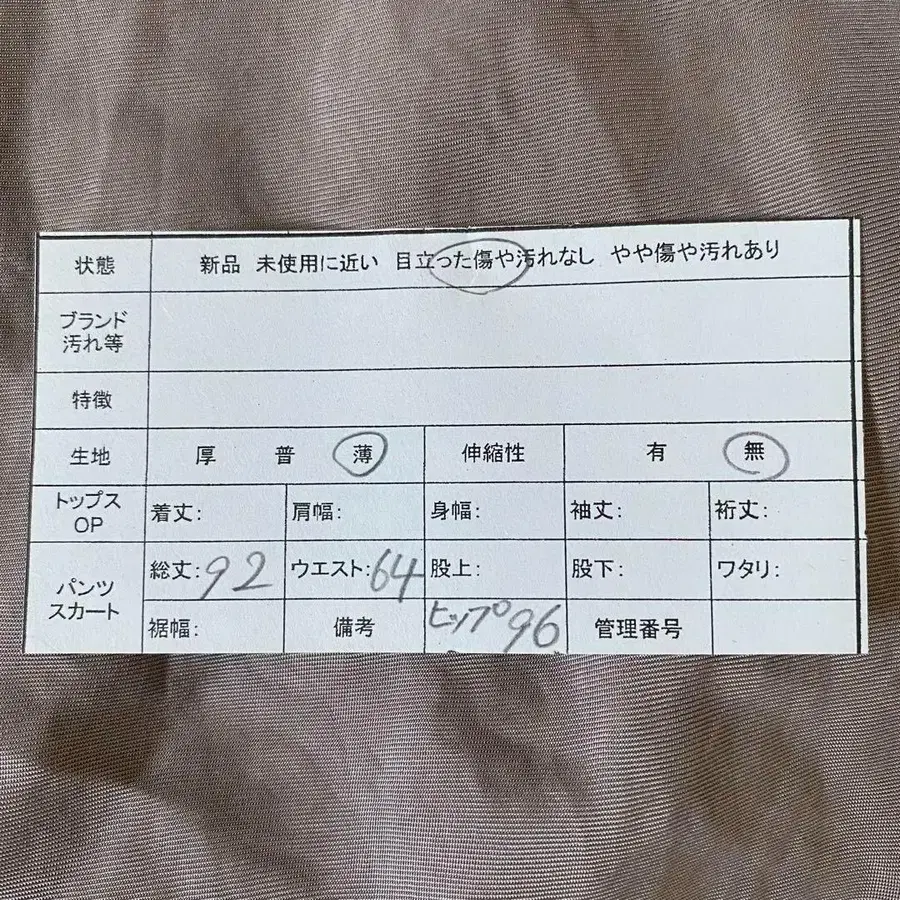 状態 新品 未使用に近い 目立った傷や汚れなし やや傷や汚れあり
ブランド
汚れ等
特徴
生地 厚 普 薄 伸縮性 有 無
トップス
OP
着丈: 肩幅: 身幅: 袖丈: 裄丈:
パンツ
スカート
総丈:92 ウエスト:64 股上: 股下: ワタリ:
裾幅: 備考 ヒップ96 管理番号